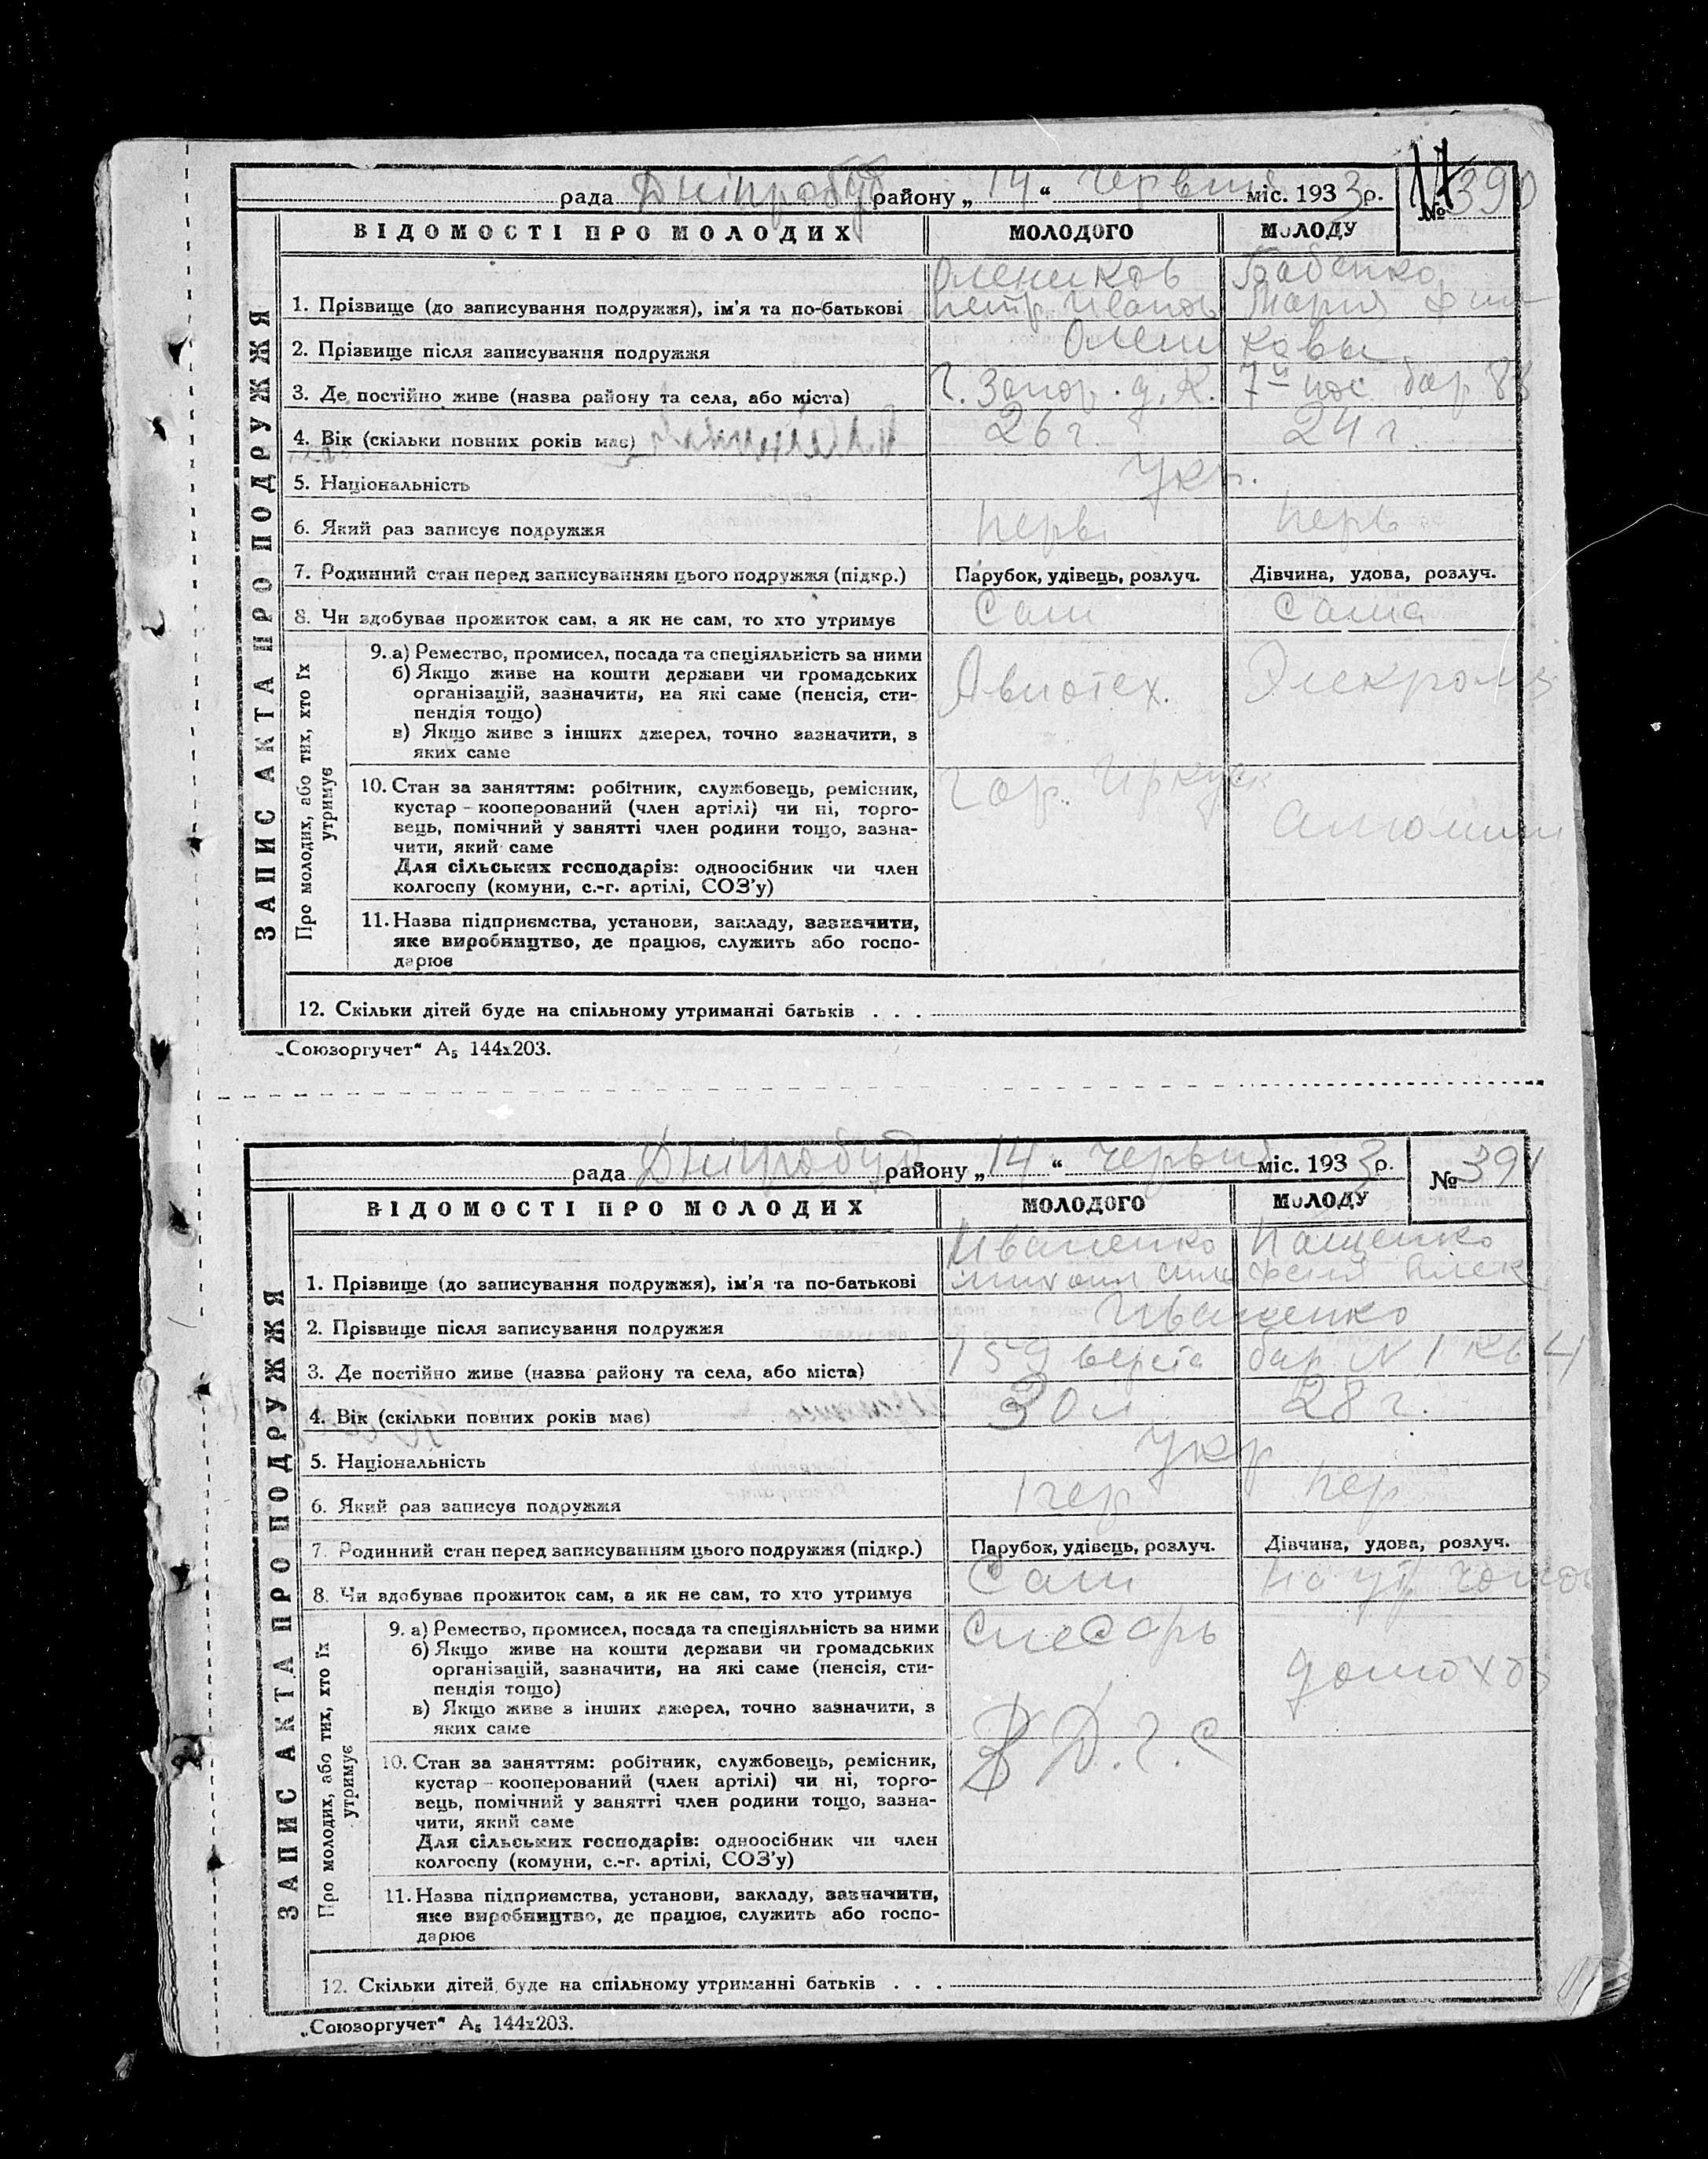 рада Дніпробуд району „ 14 “ червня міс. 1933 р.
№ 390
17
ВІДОМОСТІ ПРО МОЛОДИХ МОЛОДОГО МОЛОДУ
Олеников Бабенко
1. Прізвище (до записування подружжя), ім'я та по-батькові Петр. Иванов Мария Фил
2. Прізвище після записування подружжя Олениковы
3. Де постійно живе (назва району та села, або міста) г. Запор. д. К. 7й пос бар 88
4. Вік (скільки повних років має) 26 г. 24 г.
5. Національність Укр.
6. Який раз записує подружжя перв перв
7. Родинний стан перед записуванням цього подружжя (підкр.) Парубок, удівець, розлуч. Дівчина, удова, розлуч.
8. Чи здобував прожиток сам, а як не сам, то хто утримує Сам Сама
ЗАПИС АКТА ПРО ПОДРУЖЖЯ
Про молодих, або тих, хто їх утримує
9. а) Ремество, промисел, посада та спеціяльність за ними
б) Якщо живе на кошти держави чи громадських
організацій, зазначити, на які саме (пенсія, сти-
пендія тощо)
в) Якщо живе з інших джерел, точно зазначити, з
яких саме
Авиотех.
10. Стан за заняттям: робітник, службовець, ремісник,
кустар – кооперований (член артілі) чи ні, торго-
вець, помічний у занятті член родини тощо, зазна-
чити, який саме
Для сільських господарів: одноосібник чи член
колгоспу (комуни, с.-г. артілі, СОЗ'у)
гор. Иркуск
алюмин
11. Назва підприємства, установи, закладу, зазначити,
яке виробництво, де працює, служить або госпо-
дарює
12. Скільки дітей буде на спільному утриманні батьків . . .
„Союзоргучет“ А5 144х203.
рада Дніпробуд району „ 14 “ червня міс. 1933 р.
№ 391
ВІДОМОСТІ ПРО МОЛОДИХ МОЛОДОГО МОЛОДУ
Иваненко Пащенко
1. Прізвище (до записування подружжя), ім'я та по-батькові Михаил Алек
2. Прізвище після записування подружжя Иваненко
3. Де постійно живе (назва району та села, або міста) 159 верста бар N 1 кв 4
4. Вік (скільки повних років має) 30 л 28 г.
5. Національність Укр
6. Який раз записує подружжя пер пер
7. Родинний стан перед записуванням цього подружжя (підкр.) Парубок, удівець, розлуч. Дівчина, удова, розлуч.
8. Чи здобував прожиток сам, а як не сам, то хто утримує Сам на
ЗАПИС АКТА ПРО ПОДРУЖЖЯ
Про молодих, або тих, хто їх утримує
9. а) Ремество, промисел, посада та спеціяльність за ними
б) Якщо живе на кошти держави чи громадських
організацій, зазначити, на які саме (пенсія, сти-
пендія тощо)
в) Якщо живе з інших джерел, точно зазначити, з
яких саме
слесарь
домохоз
10. Стан за заняттям: робітник, службовець, ремісник,
кустар – кооперований (член артілі) чи ні, торго-
вець, помічний у занятті член родини тощо, зазна-
чити, який саме
Для сільських господарів: одноосібник чи член
колгоспу (комуни, с.-г. артілі, СОЗ'у)
Д. Г. С
11. Назва підприємства, установи, закладу, зазначити,
яке виробництво, де працює, служить або госпо-
дарює
12. Скільки дітей буде на спільному утриманні батьків . . .
„Союзоргучет“ А5 144х203.